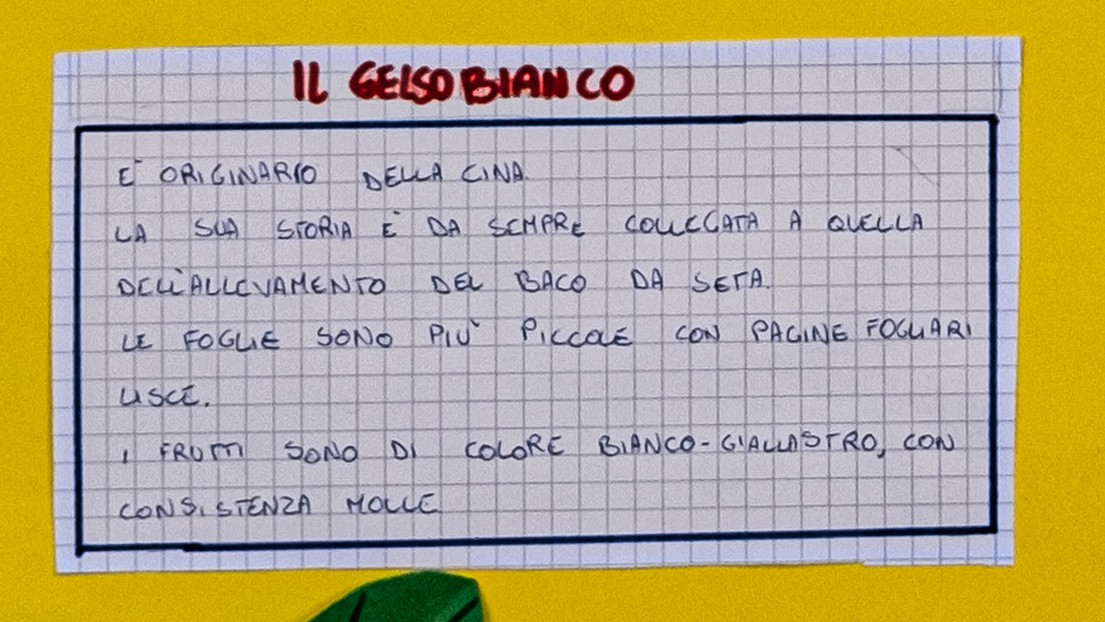 IL GELSO BIANCO
E' ORIGINARIO DELLA CINA.
LA SUA STORIA E' DA SEMPRE COLLEGATA A QUELLA
DELL'ALLEVAMENTO DEL BACO DA SETA.
LE FOGLIE SONO PIU' PICCOLE CON PAGINE FOGLIARI
LISCE.
I FRUTTI SONO DI COLORE BIANCO-GIALLASTRO, CON
CONSISTENZA MOLLE